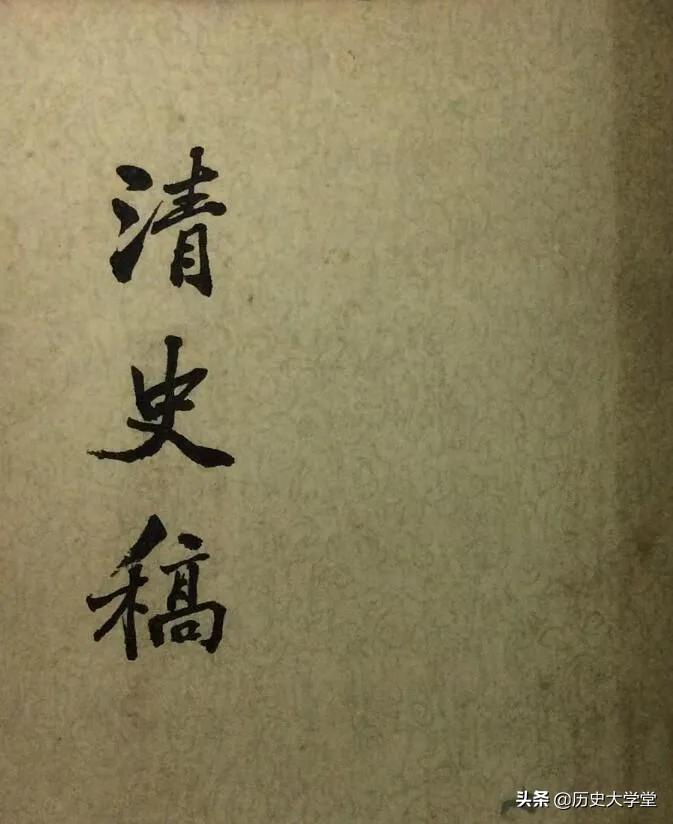 清史稿
头条 @历史大学堂